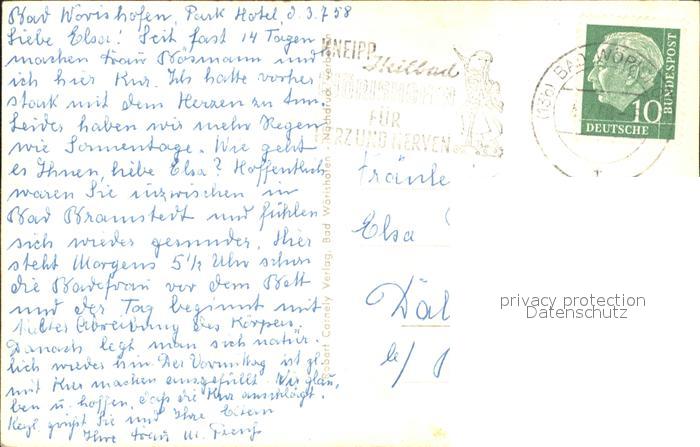 Bad Wörishofen, Park Hotel, d. 3.7.58
Liebe Elsa! Seit fast 14 Tagen
machen Frau Bösmann und
ich hier Kur. Ich hatte vorher
stark mit dem Herzen zu tun.
Leider haben wir mehr Regen
wie Sonnentage. Wie geht
es Ihnen, liebe Elsa? Hoffentlich
waren Sie inzwischen in
Bad Bramstedt und fühlen
sich wieder gesunder. Hier
steht Morgens 5½ Uhr schon
die Badefrau vor dem Bett
und der Tag beginnt mit
kalter Abreibung des Körpers.
Danach legt man sich natür-
lich wieder hin. Der Vormittag ist
mit Kur machen ausgefüllt. Wir glau-
ben u. hoffen, daß die Kur anschlägt.
Herzl. grüßt Sie und Ihre Eltern
Ihre Frau M.
Robert Cornely Verlag, Bad Wörishofen - Nachdruck verboten
KNEIPP
Heilbad
WÖRISHOFEN
FÜR
HERZ UND NERVEN
(13b) BAD WÖRI
10
DEUTSCHE
BUNDESPOST
Fräule
Elsa
Däl
b/
privacy protection
Datenschutz